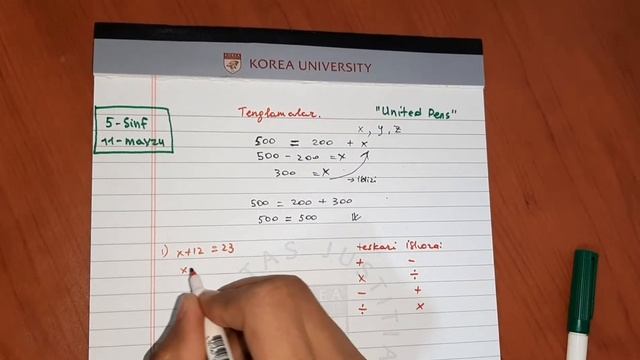 KOREA UNIVERSITY
5-Sinf
11-mavzu
Tenglamalar.
"United Pens"
x, y, z
500 = 200 + x
500 - 200 = x
300 = x
→ ildizi
500 = 200 + 300
500 = 500
1) x+12 = 23
x
teskari ishorai
+ -
x ÷
- +
÷ x